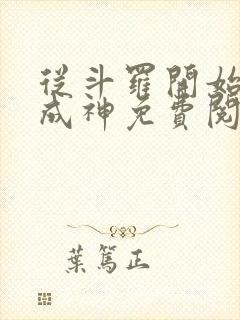 從斗羅開始
成神免費閱
葉篤正